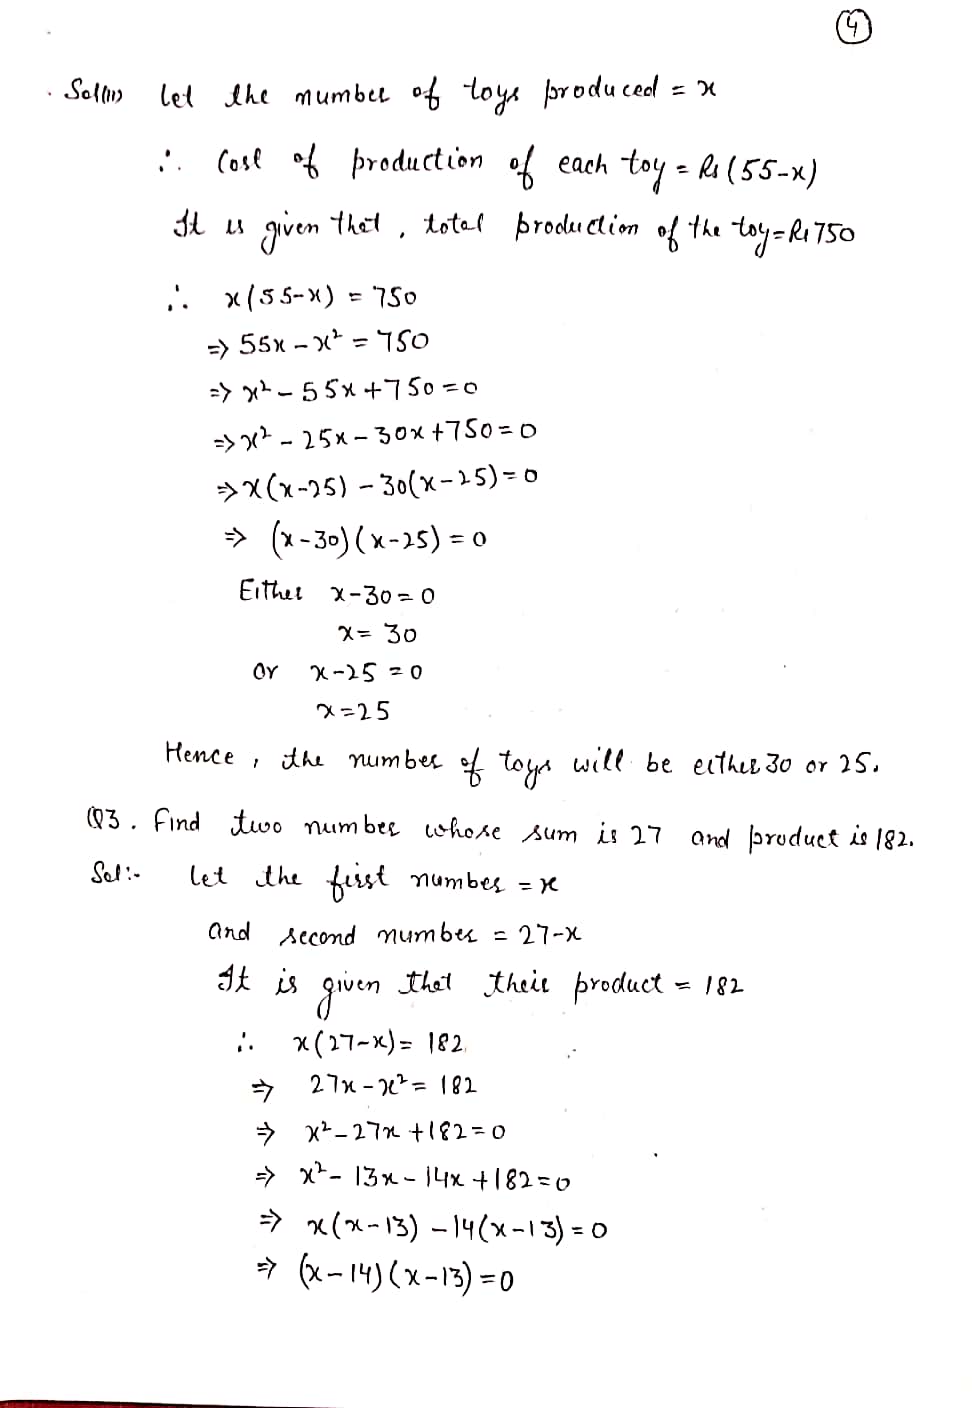 4
Sol(ii) Let the number of toys produced = x
∴ Cost of production of each toy = Rs (55-x)
It is given that, total production of the toy = Rs 750
∴ x(55-x) = 750
⇒ 55x - x² = 750
⇒ x² - 55x + 750 = 0
⇒ x² - 25x - 30x + 750 = 0
⇒ x(x-25) - 30(x-25) = 0
⇒ (x-30)(x-25) = 0
Either x-30 = 0
x = 30
or x-25 = 0
x = 25
Hence, the number of toys will be either 30 or 25.
Q3. Find two number whose sum is 27 and product is 182.
Sol:- Let the first number = x
and second number = 27-x
It is given that their product = 182
∴ x(27-x) = 182
⇒ 27x - x² = 182
⇒ x² - 27x + 182 = 0
⇒ x² - 13x - 14x + 182 = 0
⇒ x(x-13) - 14(x-13) = 0
⇒ (x-14)(x-13) = 0